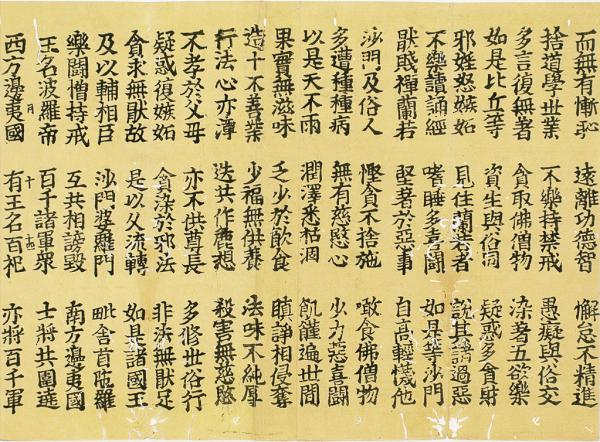 而無有慚恥 遠離功德智 懈怠不精進
捨道學世業 不樂持禁戒 愚癡與俗交
多言復無羞 貪取佛僧物 染著五欲樂
如是比丘等 資生與俗同 疑惑多貪財
邪婬怒嫉妬 見住蘭若者 說其諸過惡
不樂讀誦經 嗜睡多喜鬪 如是等沙門
猒賤禪蘭若 堅著於惡事 自高輕懱他
沙門及俗人 慳貪不捨施 噉食佛僧物
多遭種種病 無有慈愍心 少力惡喜鬪
以是天不雨 潤澤悉枯涸 飢饉遍世間
果實無滋味 乏少於飲食 瞋諍相侵奪
造十不善業 少福無供養 法味不純厚
行法心亦薄 迭共作麁想 殺害無慈愍
不孝於父母 亦不供尊長 多修世俗行
疑惑復嫉妬 貪染於邪法 非法無猒足
貪求無猒故 是以久流轉 如是諸國王
及以輔相臣 沙門婆羅門 毗舍首陀羅
樂鬪憎持戒 互共相謗毀 南方邊夷國
王名波羅帝 百千諸軍衆 士將共圍遶
西方邊夷國 有王名百祀 亦將百千軍